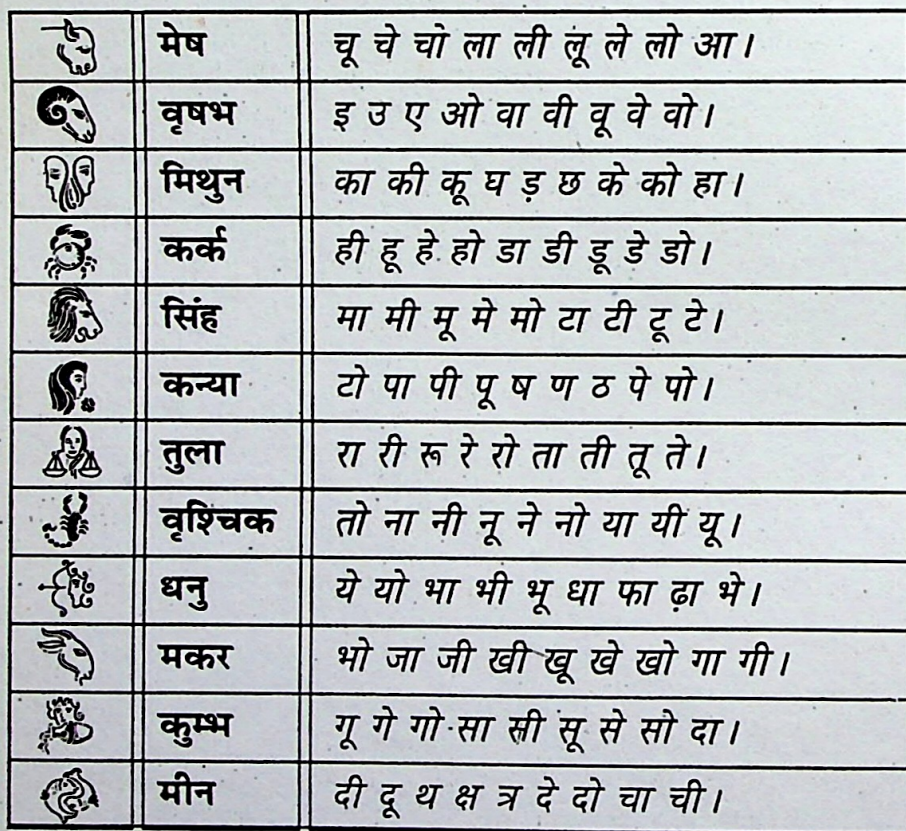 मेष चू चे चो ला ली लू ले लो आ।
वृषभ इ उ ए ओ वा वी वू वे वो।
मिथुन का की कू घ ड़ छ के को हा।
कर्क ही हू हे हो डा डी डू डे डो।
सिंह मा मी मू मे मो टा टी टू टे।
कन्या टो पा पी पू ष ण ठ पे पो।
तुला रा री रू रे रो ता ती तू ते।
वृश्चिक तो ना नी नू ने नो या यी यू।
धनु ये यो भा भी भू धा फा ढ़ा भे।
मकर भो जा जी खी खू खे खो गा गी।
कुम्भ गू गे गो सा सी सू से सो दा।
मीन दी दू थ क्ष त्र दे दो चा ची।